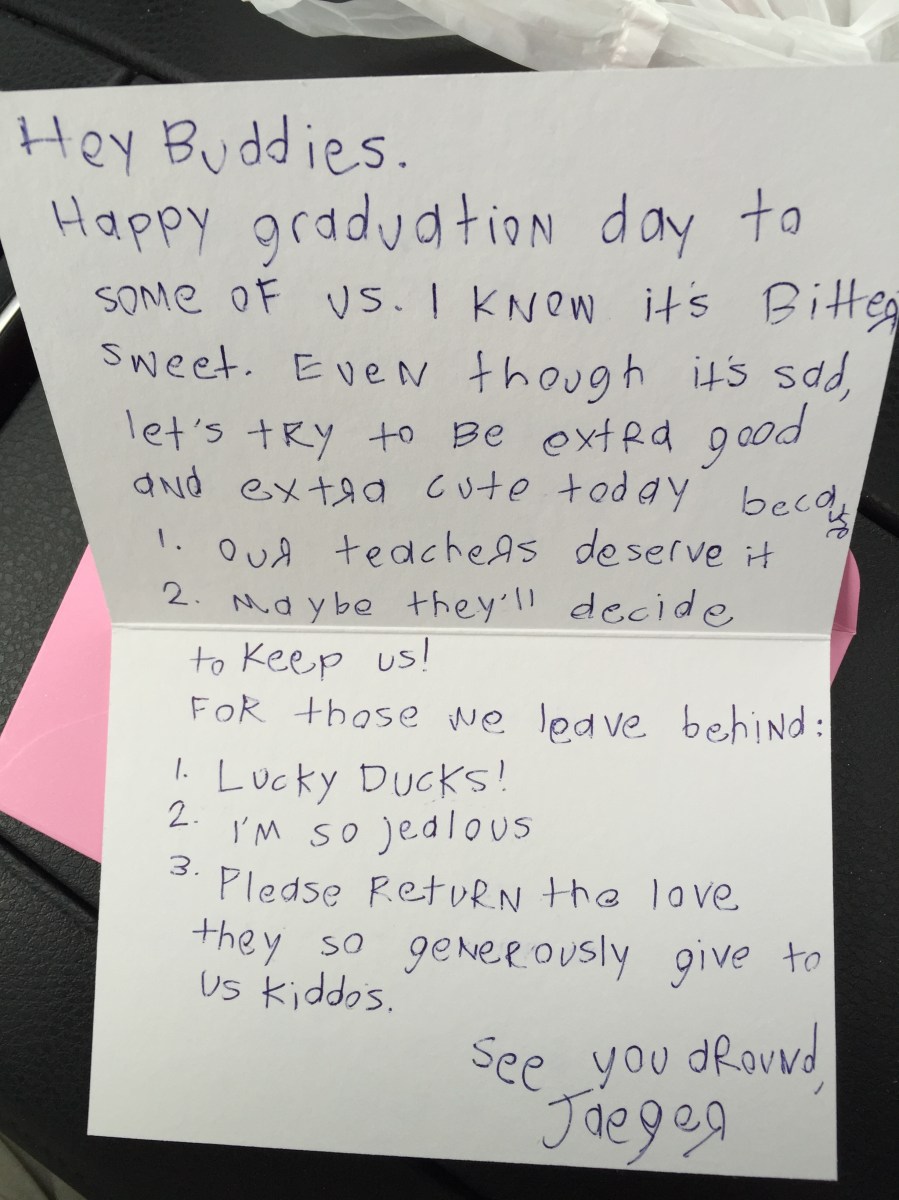 Hey Buddies.
Happy graduation day to
some of us. I know it's Bitter
sweet. Even though it's sad,
let's tRy to Be extRa good
and extra cute today because
1. our teachers deserve it
2. Maybe they'll decide
to Keep us!
FoR those we leave behind:
1. Lucky Ducks!
2. I'm so jealous
3. Please RetuRN the love
they so geneRously give to
us kiddos.
see you aRound,
Jaeger